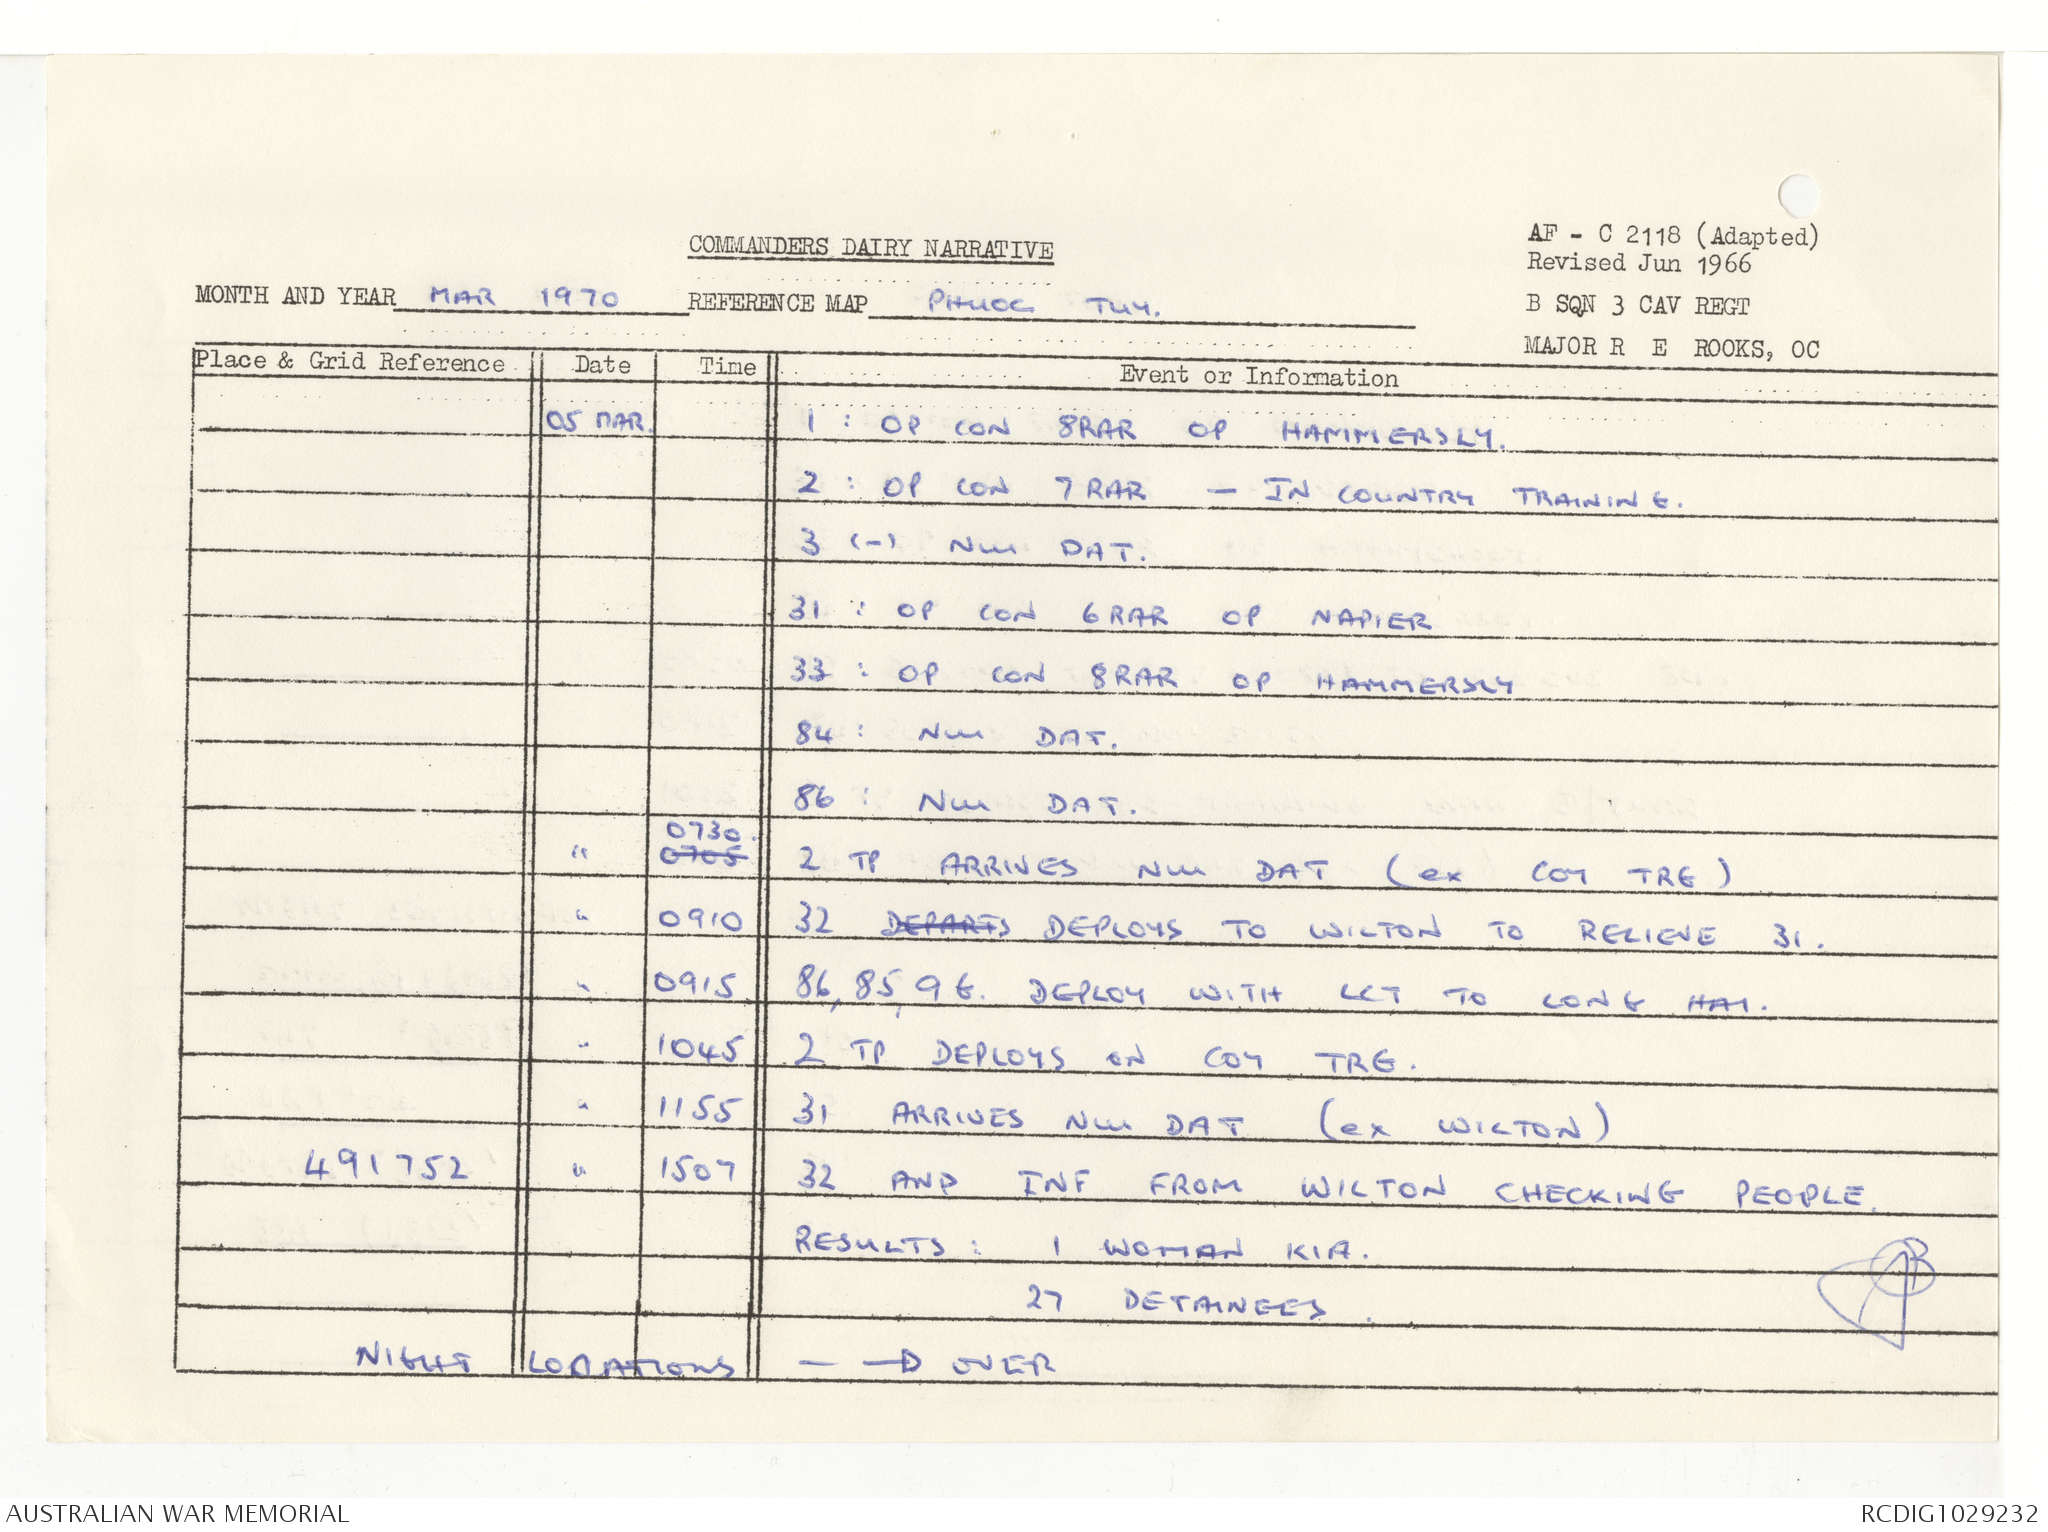 COMMANDERS DAIRY NARRATIVE
AF - C 2118 (Adapted)
Revised Jun 1966
B SQN 3 CAV REGT
MAJOR R E ROOKS, OC
MONTH AND YEAR MAR 1970 REFERENCE MAP PHUOC TUY.
Place & Grid Reference Date Time Event or Information
05 MAR. 1 : OP CON 8RAR OP HAMMERSLY.
2 : OP CON 7 RAR - IN COUNTRY TRAINING.
3 (-) NUI DAT.
31 : OP CON 6RAR OP NAPIER
33 : OP CON 8RAR OP HAMMERSLY
84 : NUI DAT.
86 : NUI DAT.
0730.
" 0705 2 TP ARRIVES NUI DAT (ex COY TRG)
" 0910 32 DEPARTS DEPLOYS TO WILTON TO RELIEVE 31.
" 0915 86, 85, 9G. DEPLOY WITH LCT TO LONG HAI.
" 1045 2 TP DEPLOYS ON COY TRG.
" 1155 31 ARRIVES NUI DAT (ex WILTON)
491752 " 1507 32 AND INF FROM WILTON CHECKING PEOPLE.
RESULTS : 1 WOMAN KIA.
27 DETAINEES.
NIGHT LOCATIONS - → OVER
AUSTRALIAN WAR MEMORIAL RCDIG1029232